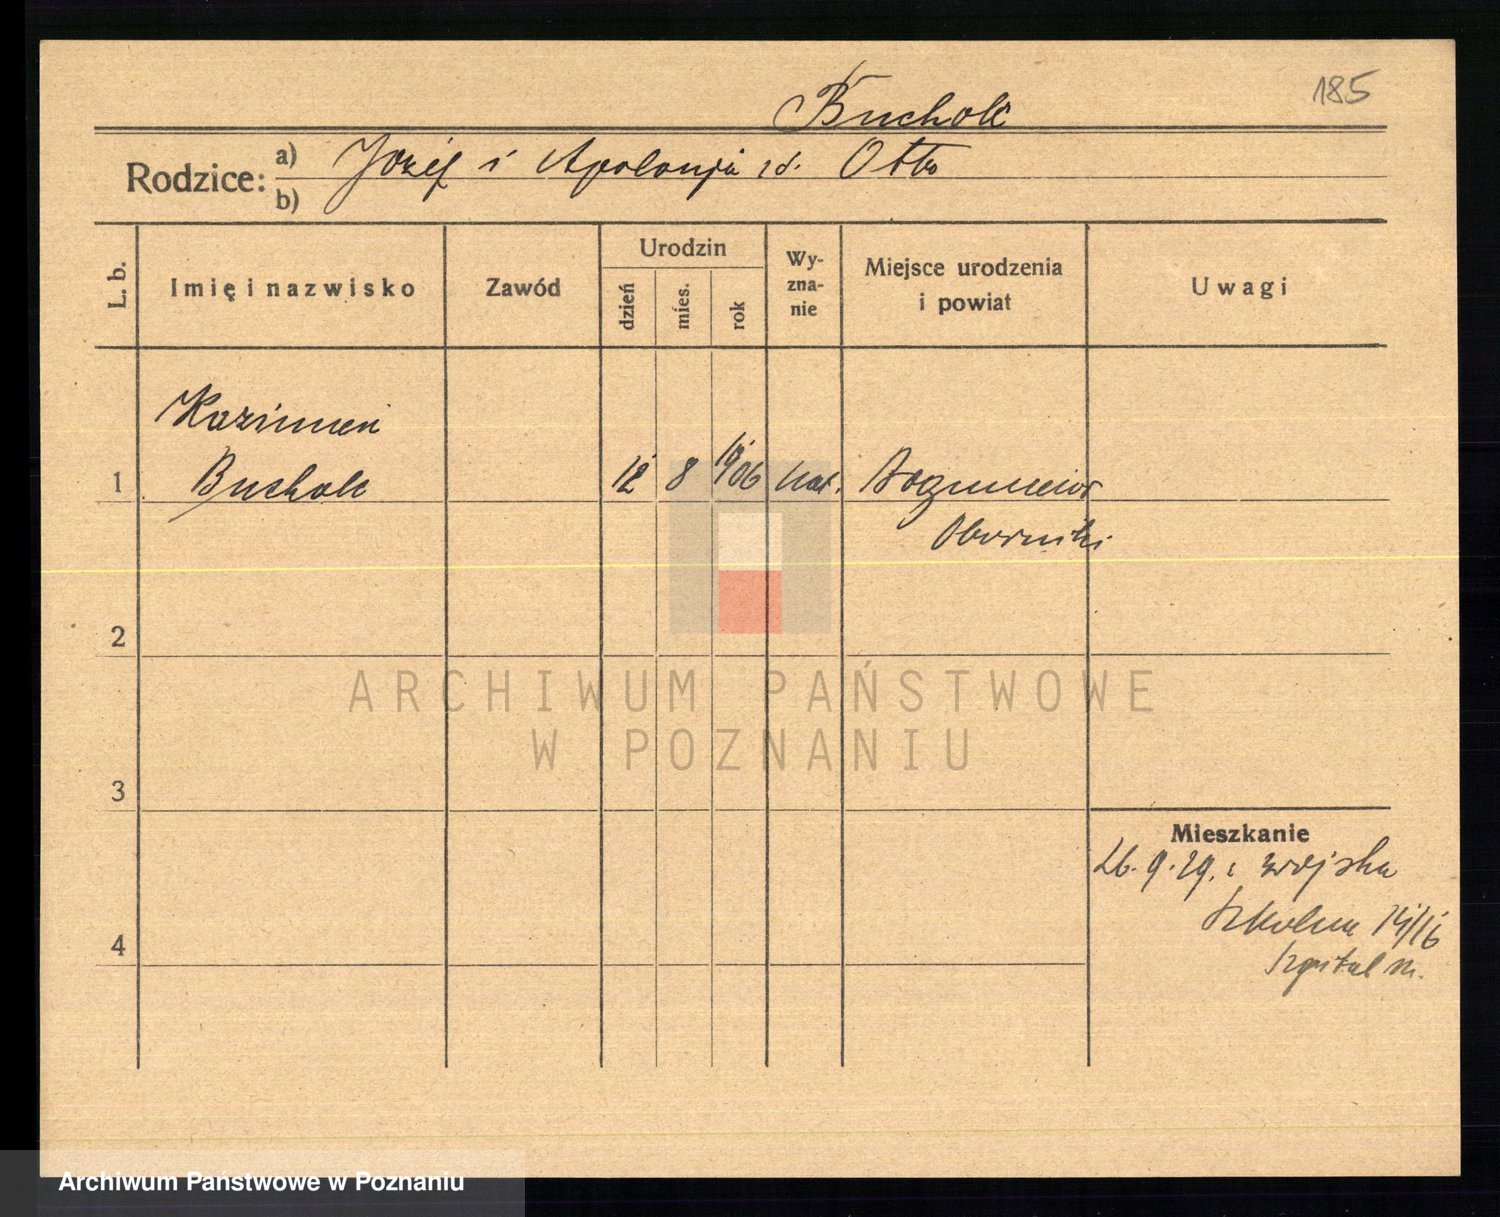 185
Bucholc
Rodzice: a) Józef i Apolonja zd. Otto
b)
L. b. Imię i nazwisko Zawód Urodzin dzień mies. rok Wyznanie Miejsce urodzenia i powiat Uwagi
Kazimierz
1 Bucholc 12 8 1906 kat.
Oborniki
2
ARCHIWUM PAŃSTWOWE
W POZNANIU
3
Mieszkanie
26.9.29. z wojska
Szkolna 14/16
4
Szpital m.
Archiwum Państwowe w Poznaniu